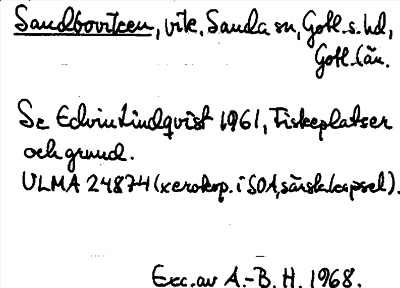 Sandboviken, vik, Sanda sn, Gotl. s. hd,
Gotl. län.
Se Edvin Lindqvist 1961, Fiskeplatser
och grund.
ULMA 24874 (xerokop. i SOA, särsk. kapsel).
Exc. av A.-B. H. 1968.